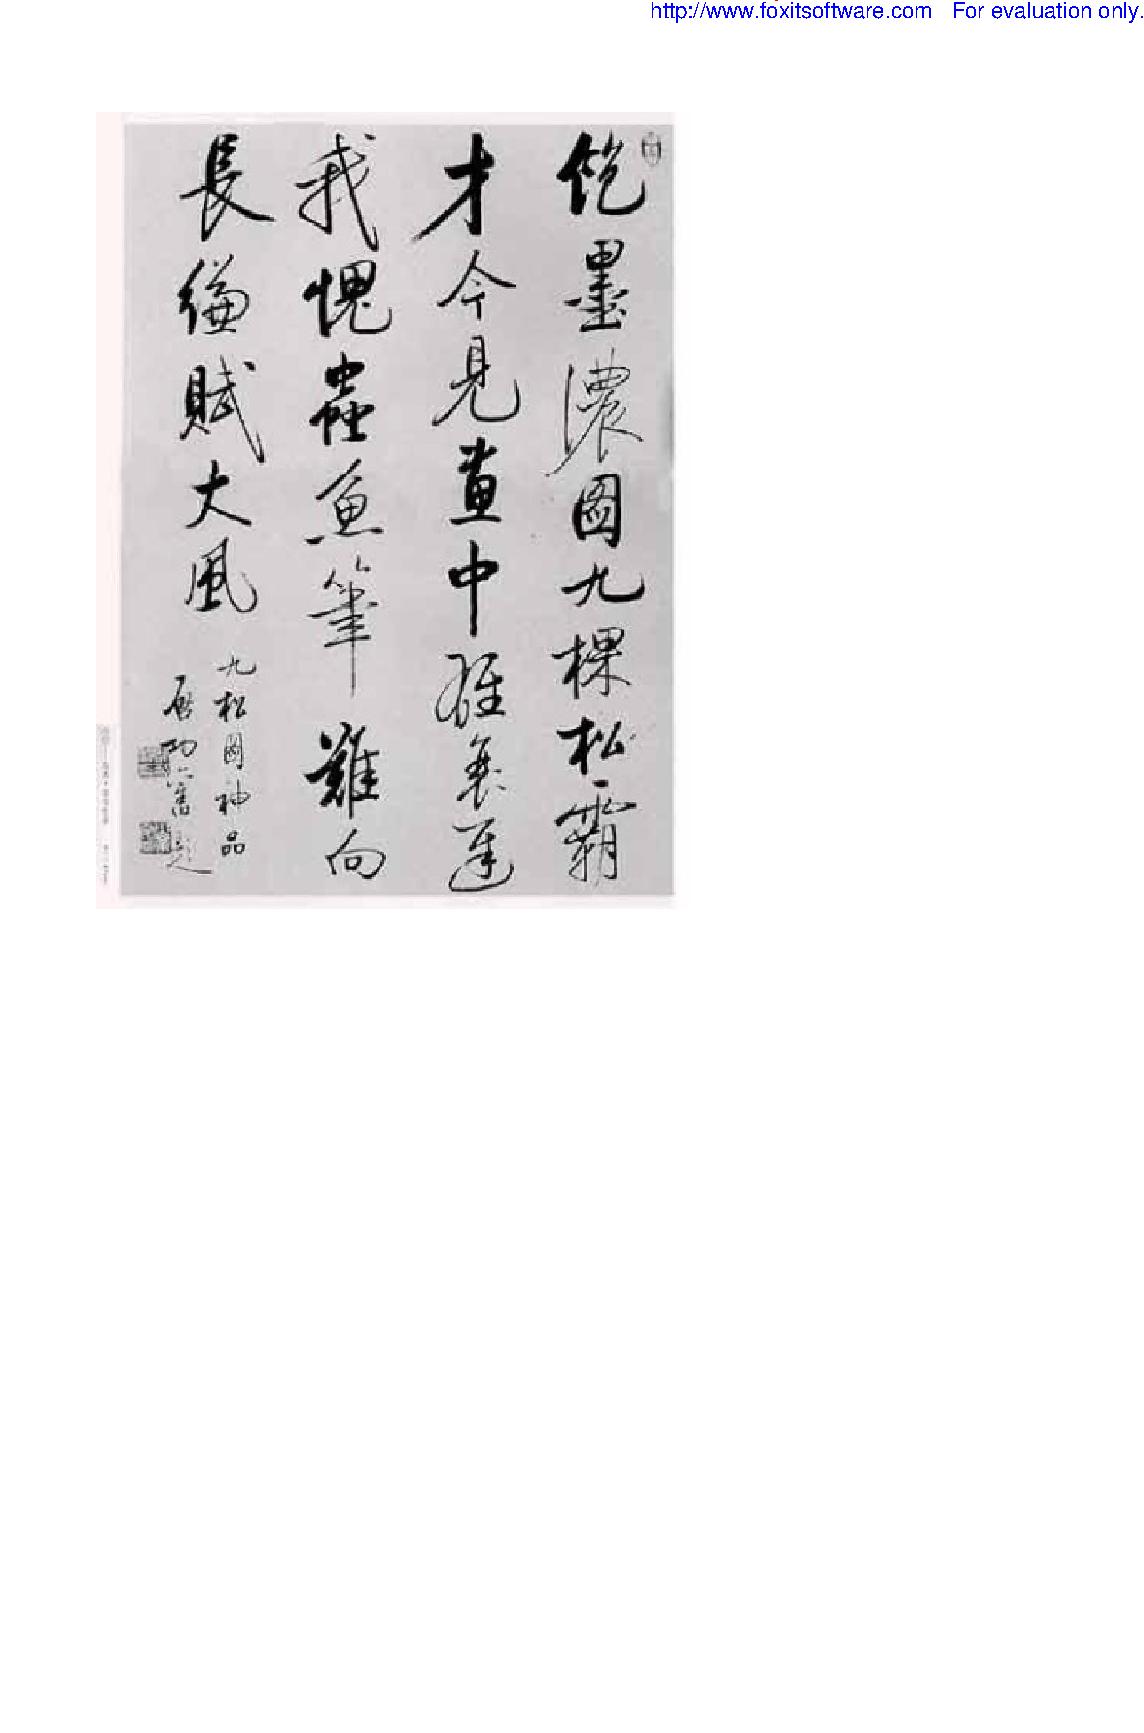 http://www.foxitsoftware.com For evaluation only.
饱墨濃圖九棵松霸
才今見畫中雄襄遅
我愧蟲魚筆難向
長縑賦大風
九松圖神品
啟功舊題